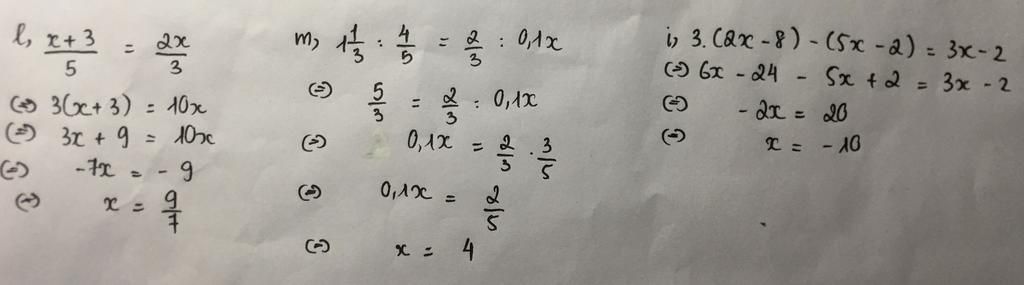 l, (x + 3)/5 = 2x/3
(=) 3(x + 3) = 10x
(=) 3x + 9 = 10x
(=) -7x = - 9
(=) x = 9/7
m, 1 1/3 : 4/5 = 2/3 : 0,1x
(=) 5/3 = 2/3 : 0,1x
(=) 0,1x = 2/3 . 3/5
(=) 0,1x = 2/5
(=) x = 4
i, 3.(2x - 8) - (5x - 2) = 3x - 2
(=) 6x - 24 - 5x + 2 = 3x - 2
(=) -2x = 20
(=) x = - 10